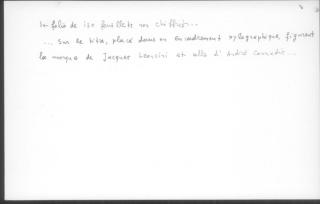 in folio de 120 feuillets non chiffrés...
... Sur le titre, placé dans un encadrement xylographique, figurent
la marque de Jacques et celle d'André